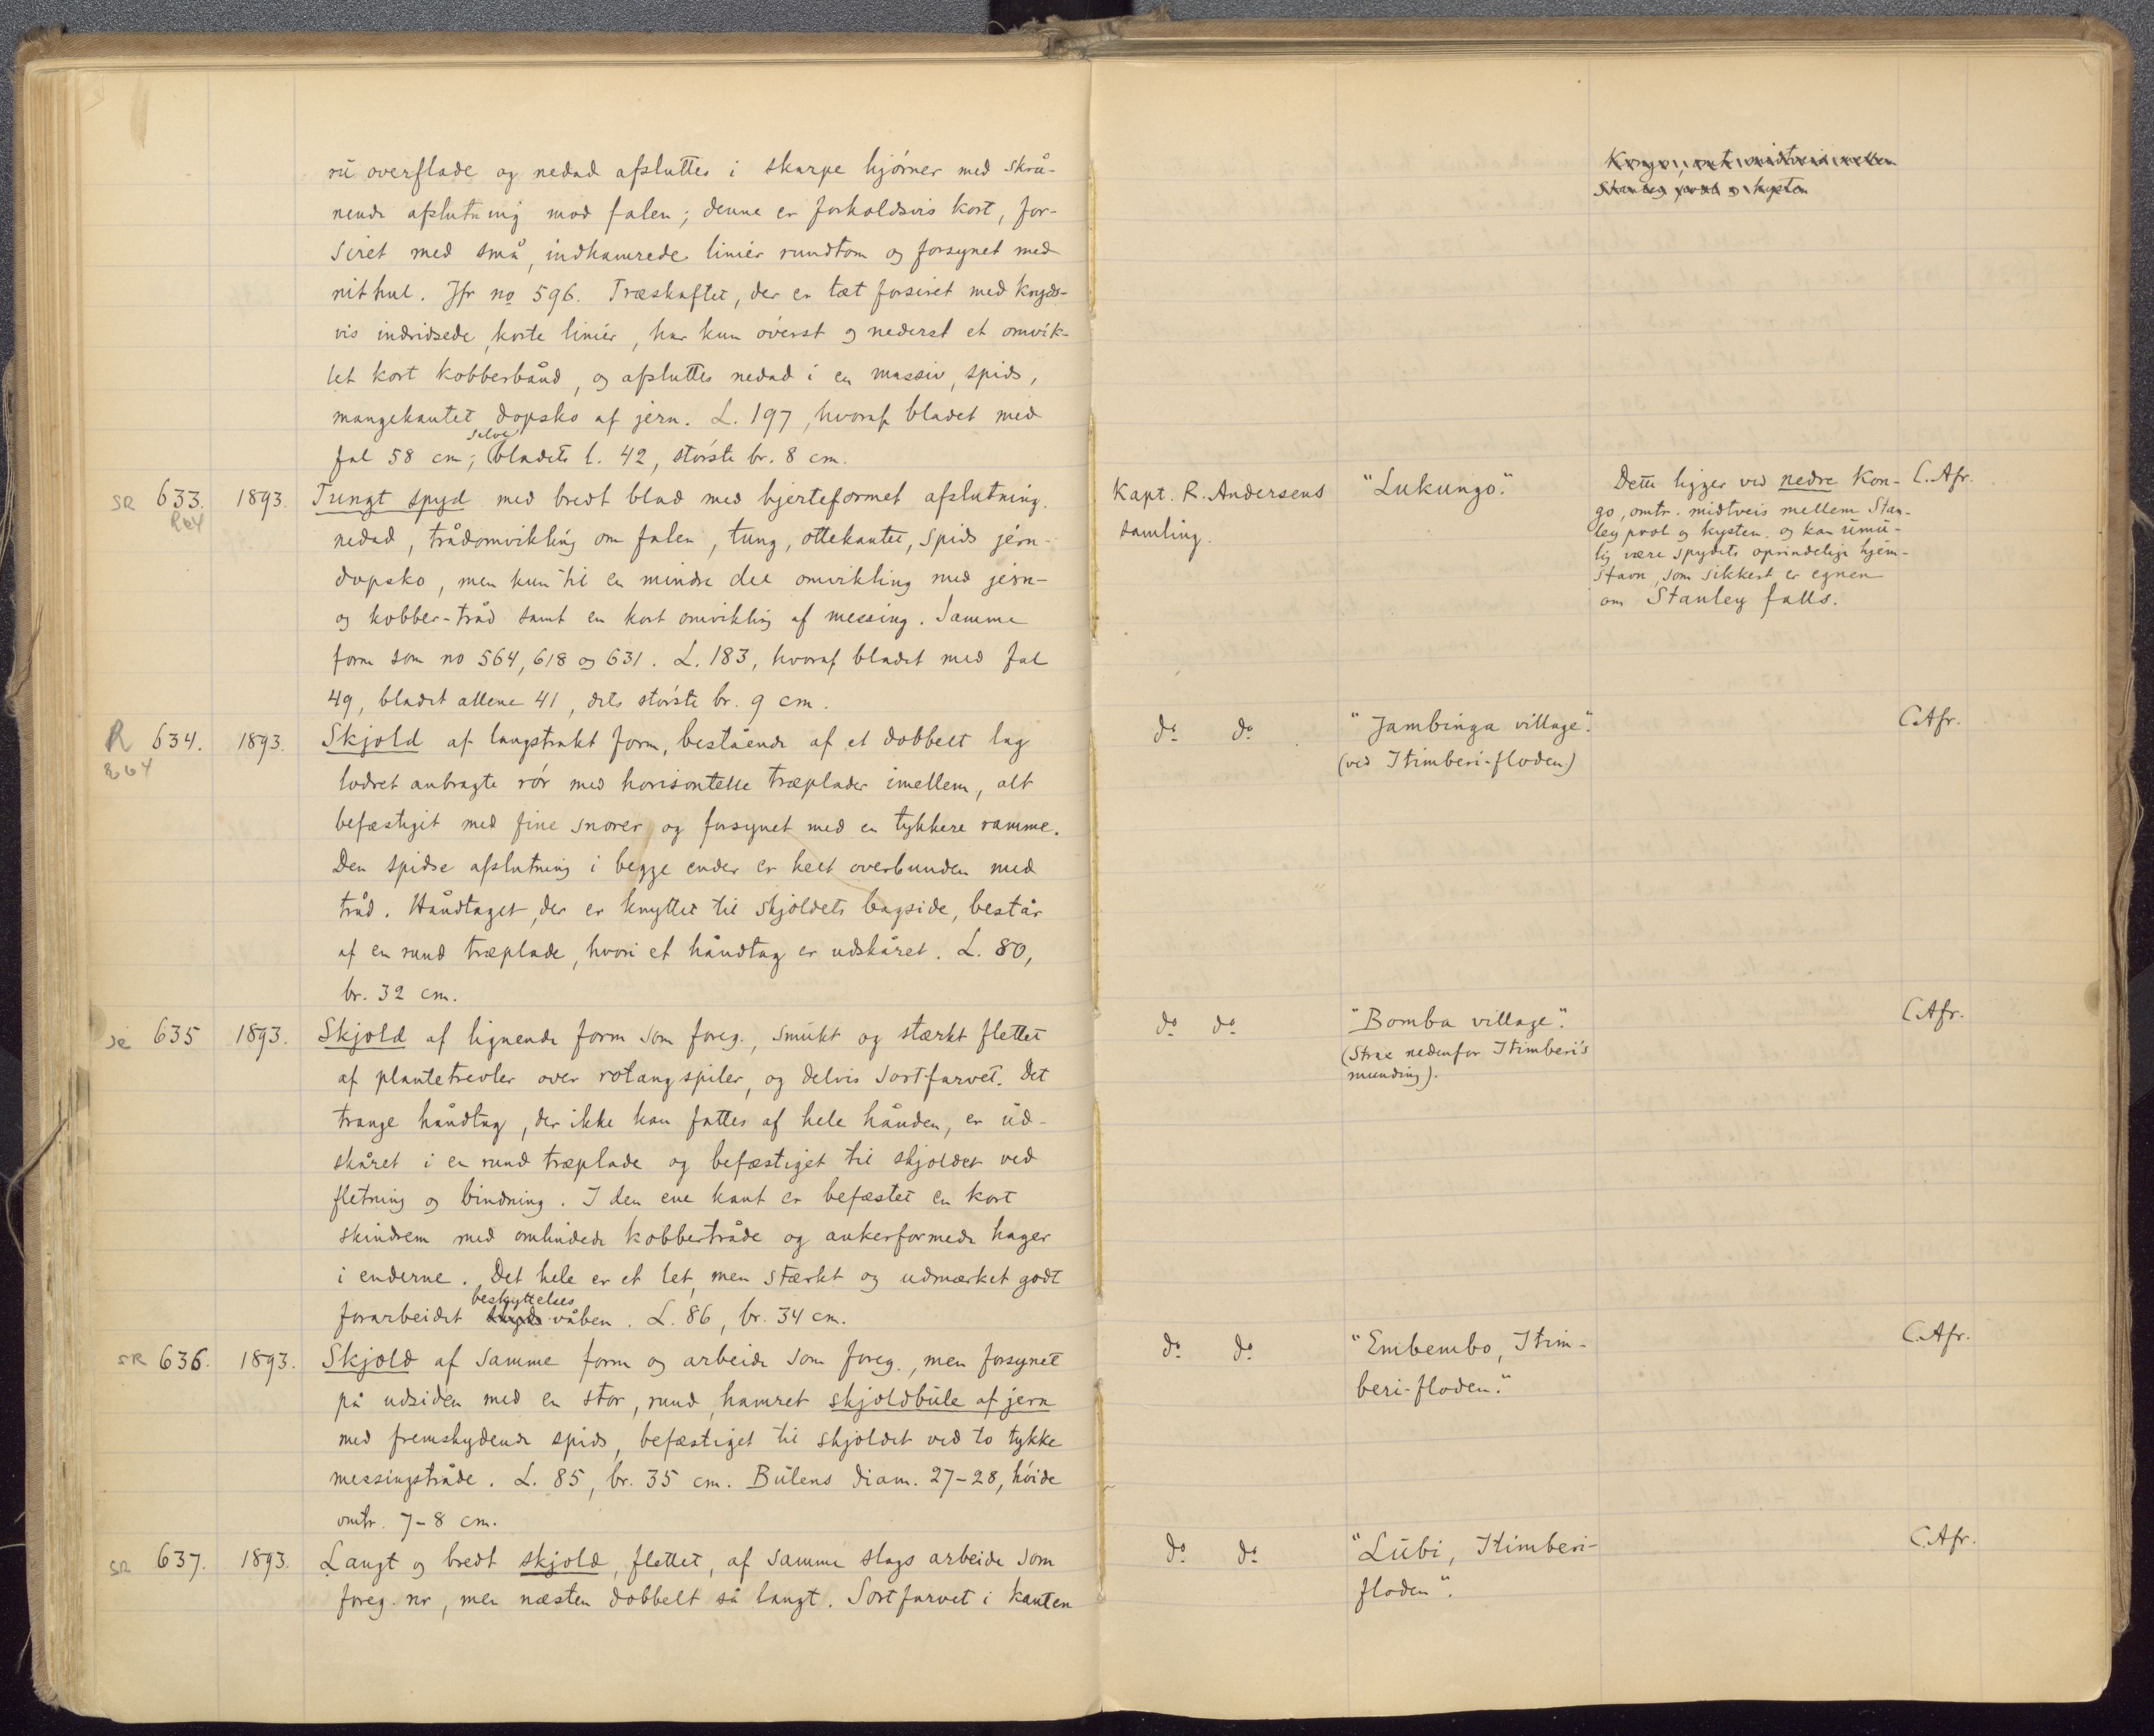 ru overflade og nedad afsluttes i skarpe hjørner med skrå-
nende afslutning mod falen; denne er forholdsvis kort, for-
siret med små, indhamrede linier rundtom og forsynet med
nithul. Jfr no 596. Træskaftet, der er tæt forsiret med kryds-
vis indridsede, korte linier, har kun øverst og nederst et omvik-
let kort kobberbånd, og afsluttes nedad i en massiv, spids,
mangekantet dopsko af jern. L. 197, hvoraf bladet med
fal 58 cm; selve bladets l. 42, største br. 8 cm.
Kongo, omtr. midtveis mellem
Stanley pool og kysten
SR 633. 1893. Tungt spyd med bredt blad med hjerteformet afslutning
R64
nedad, trådomvikling om falen, tung, ottekantet, spids jern-
dopsko, men kun til en mindre del omvikling med jern-
og kobber-tråd samt en kort omvikling af messing. Samme
form som no 564, 618 og 631. L. 183, hvoraf bladet med fal
49, bladet allene 41, dets største br. 9 cm.
Kapt. R. Andersens
samling.
"Lukungo."
Dette ligger ved nedre Kon-
go, omtr. midtveis mellem Stan-
ley pool og kysten og kan umu-
lig være spydets oprindelige hjem-
stavn, som sikkert er egnen
om Stanley falls.
C. Afr.
R 634. 1893. Skjold af langstrakt form, bestående af et dobbelt lag
R64
lodret anbragte rør med horisontelle træplader imellem, alt
befæstiget med fine snorer og forsynet med en tykkere ramme.
Den spidse afslutning i begge ender er helt overbunden med
tråd. Håndtaget, der er knyttet til skjoldets bagside, består
af en rund træplade, hvori et håndtag er udskåret. L. 80,
br. 32 cm.
do do
"Jambinga village."
(ved Itimberi-floden)
C.Afr.
SR 635 1893. Skjold af lignende form som foreg., smukt og stærkt flettet
af plantetrevler over rotangspiler, og delvis sortfarvet. Det
trange håndtag, der ikke kan fattes af hele hånden, er ud-
skåret i en rund træplade og befæstiget til skjoldet ved
fletning og bindning. I den ene kant er befæstet en kort
skindrem med ombundede kobbertråde og ankerformede hager
i enderne. Det hele er et let, men stærkt og udmærket godt
forarbeidet beskyttelses våben. L. 86, br. 34 cm.
do do
"Bomba village".
(Strax nedenfor Itimberi's
munding).
C.Afr.
SR 636. 1893. Skjold af samme form og arbeide som foreg., men forsynet
på udsiden med en stor, rund, hamret skjoldbule af jern
med fremskydende spids, befæstiget til skjoldet ved to tykke
messingtråde. L. 85, br. 35 cm. Bulens diam. 27-28, høide
omtr. 7-8 cm.
do do
"Embembo, Itim-
beri-floden."
C.Afr.
SR 637. 1893. Langt og bredt skjold, flettet, af samme slags arbeide som
foreg. nr, men næsten dobbelt så langt. Sortfarvet i kanten
do do
"Lubi, Itimberi-
floden".
C.Afr.